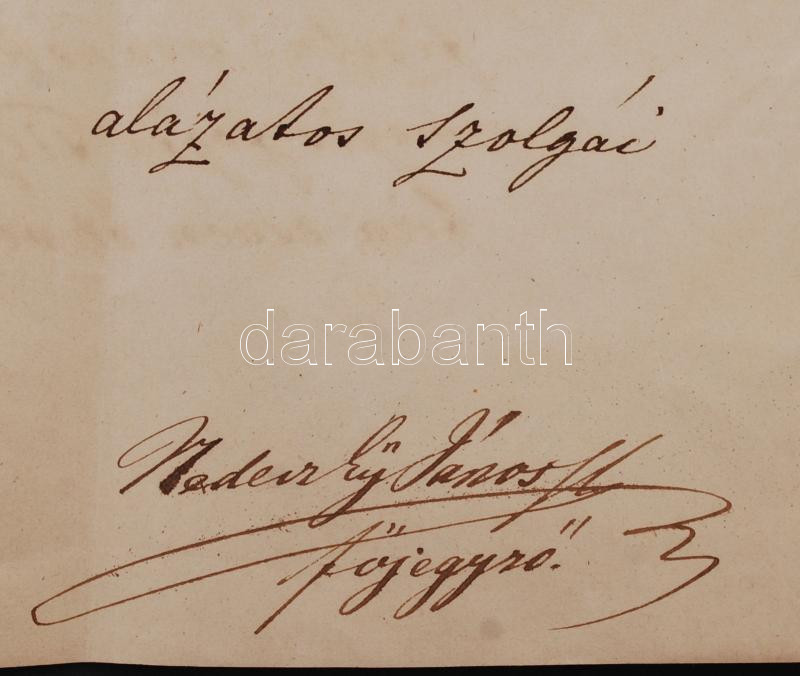 alázatos szolgái
darabanth
Nedeczkÿ János
főjegyző.